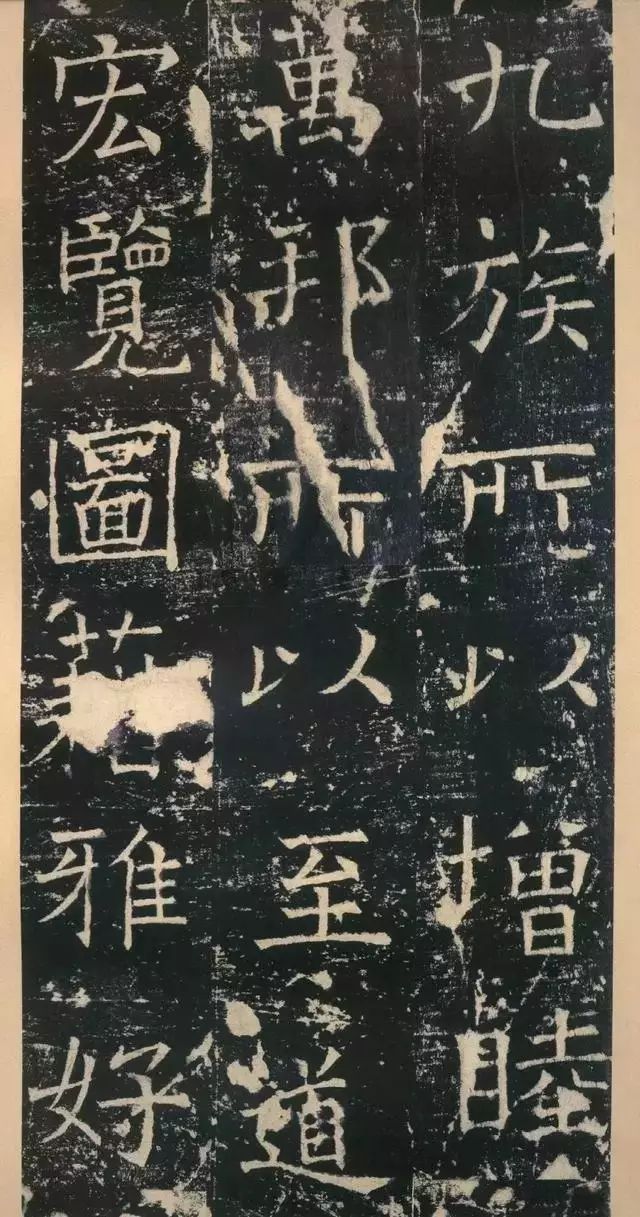 九族所以增睦
萬邦所以至道
宏覽圖藉雅好